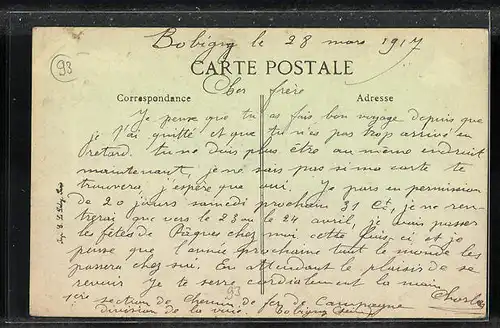 Bobigny le 28 mars 1917
93
CARTE POSTALE
Cher frère
Correspondance
Adresse
Je pense que tu as fais bon voyage depuis que
je t'ai quitté et que tu n'es pas trop arrivé en
retard. tu ne dois plus être au même endroit
maintenant, je ne sais pas si ma carte te
trouvera j'espère que oui. Je pars en permission
de 20 jours samedi prochain 31 Ct, je ne ren-
trerai que vers le 23 ou le 24 avril, je vais passer
les fêtes de Pâques chez moi cette fois-ci et je
pense que l'année prochaine tout le monde les
passera chez soi. En attendant le plaisir de se
revoir Je te serre cordialement la main
Charles
1ère section de Chemin de fer de Campagne
93
division de la voie. Bobigny Seine